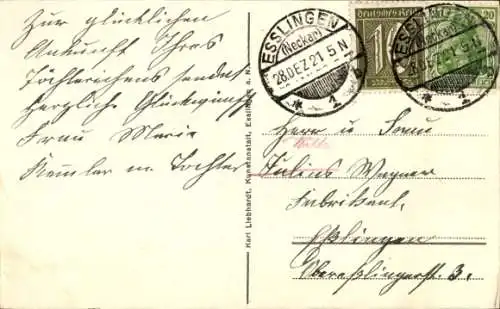 Zur glücklichen
Ankunft Ihres
Töchterchens sendet
herzliche Glückwünsche
Frau Marie
u. Tochter
Karl Liebhardt, Kunstanstalt, Esslingen a. N.
ESSLINGEN
(Neckar)
28.DEZ.21 5 N
* 1
Deutsches Reich
10
ESSLINGEN
(Neckar)
28.DEZ.21 5 N
* 1 *
Herr u Frau
Julius Wagner
Fabrikant,
Eßlingen
Obereßlingerstr. 3.